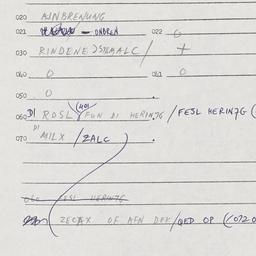 020 AJNBRENUNG
021 - ONDREH 022 0
030 RINDENE SSTMALC / +
040 0 041 0
050 0
060 DI ROSL (401) FUN DI HERING / FESL HERING (
070 DI MILX / ZALC
060 FESL HERING
ZECAX. OF AFN DEK/QED OP (072 0